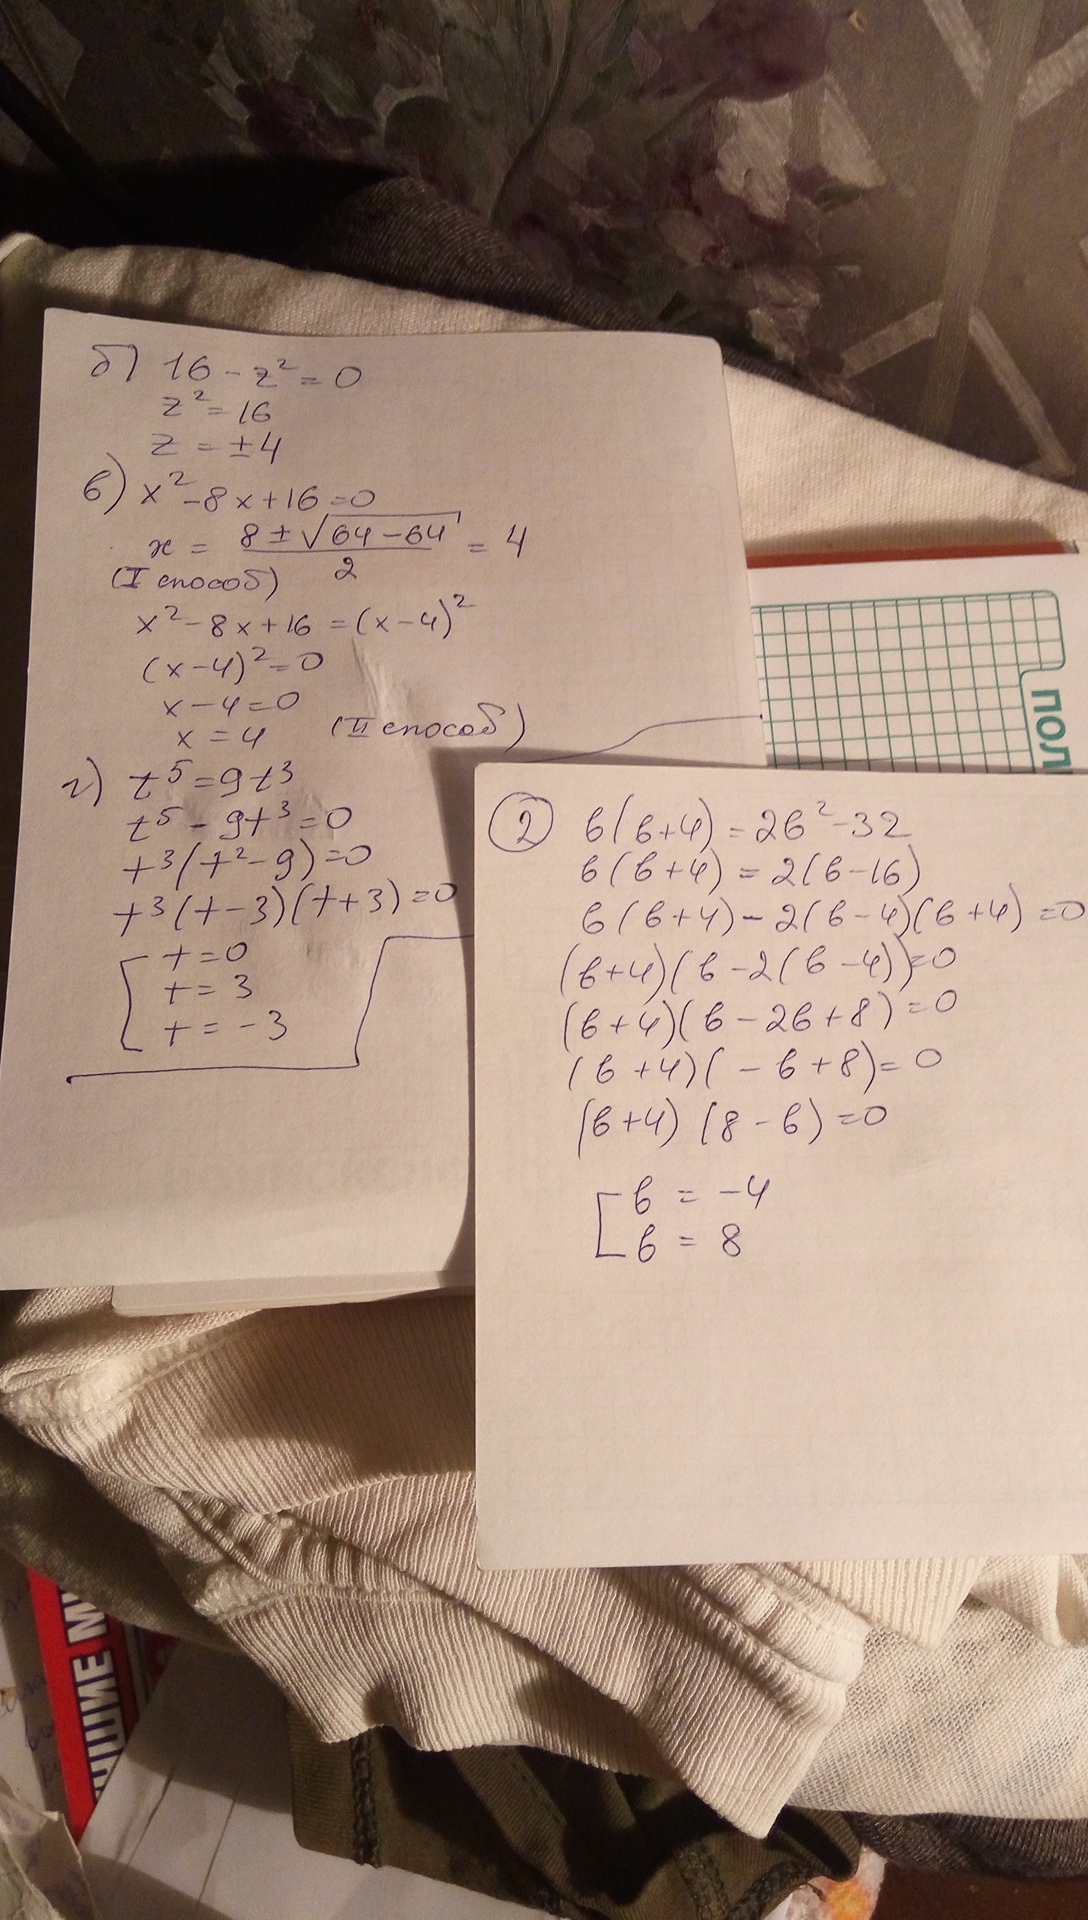 б) 16 - z² = 0
z² = 16
z = ±4
в) x² - 8x + 16 = 0
x = (8 ± √(64 - 64)) / 2 = 4
(I способ)
x² - 8x + 16 = (x - 4)²
(x - 4)² = 0
x - 4 = 0
x = 4 (II способ)
г) t⁵ = 9t³
t⁵ - 9t³ = 0
t³(t² - 9) = 0
t³(t - 3)(t + 3) = 0
t = 0
t = 3
t = -3
② b(b+4) = 2b² - 32
b(b+4) = 2(b - 16)
b(b+4) - 2(b - 4)(b + 4) = 0
(b+4)(b - 2(b - 4)) = 0
(b+4)(b - 2b + 8) = 0
(b + 4)( - b + 8) = 0
(b+4) (8 - b) = 0
b = -4
b = 8
ПОЛ